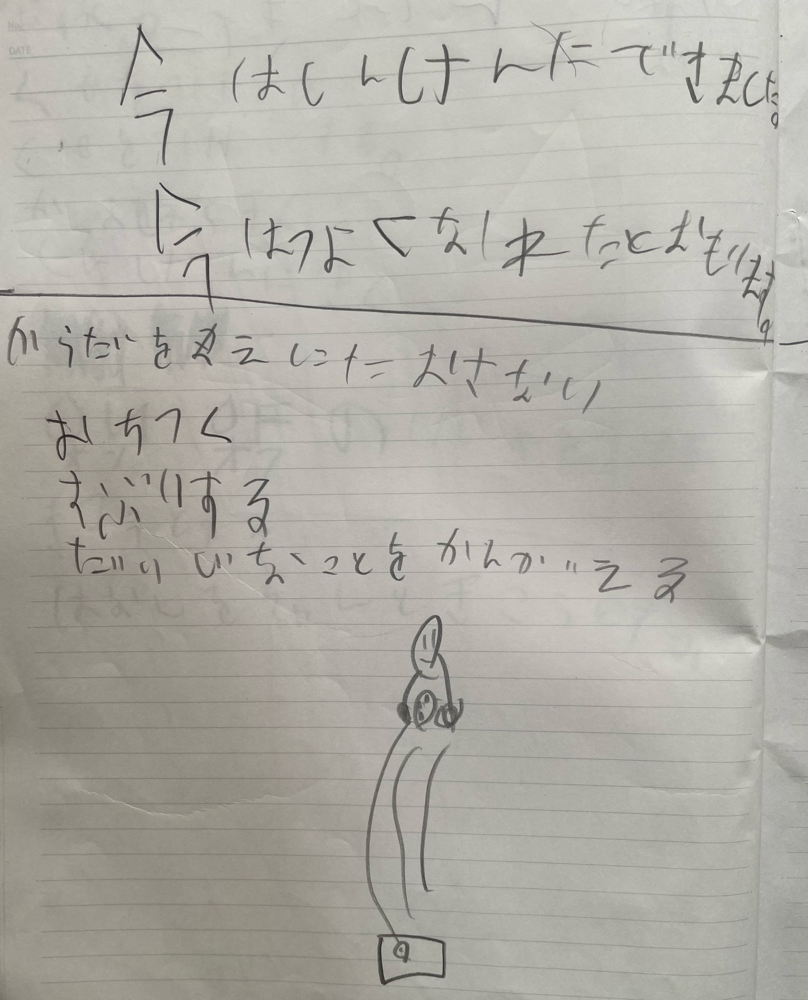 今はしんけんにできました。
今はつよくなれたとおもいます。
からだをまえにたおさない
おちつく
すぶりする
だいじなことをかんがえる